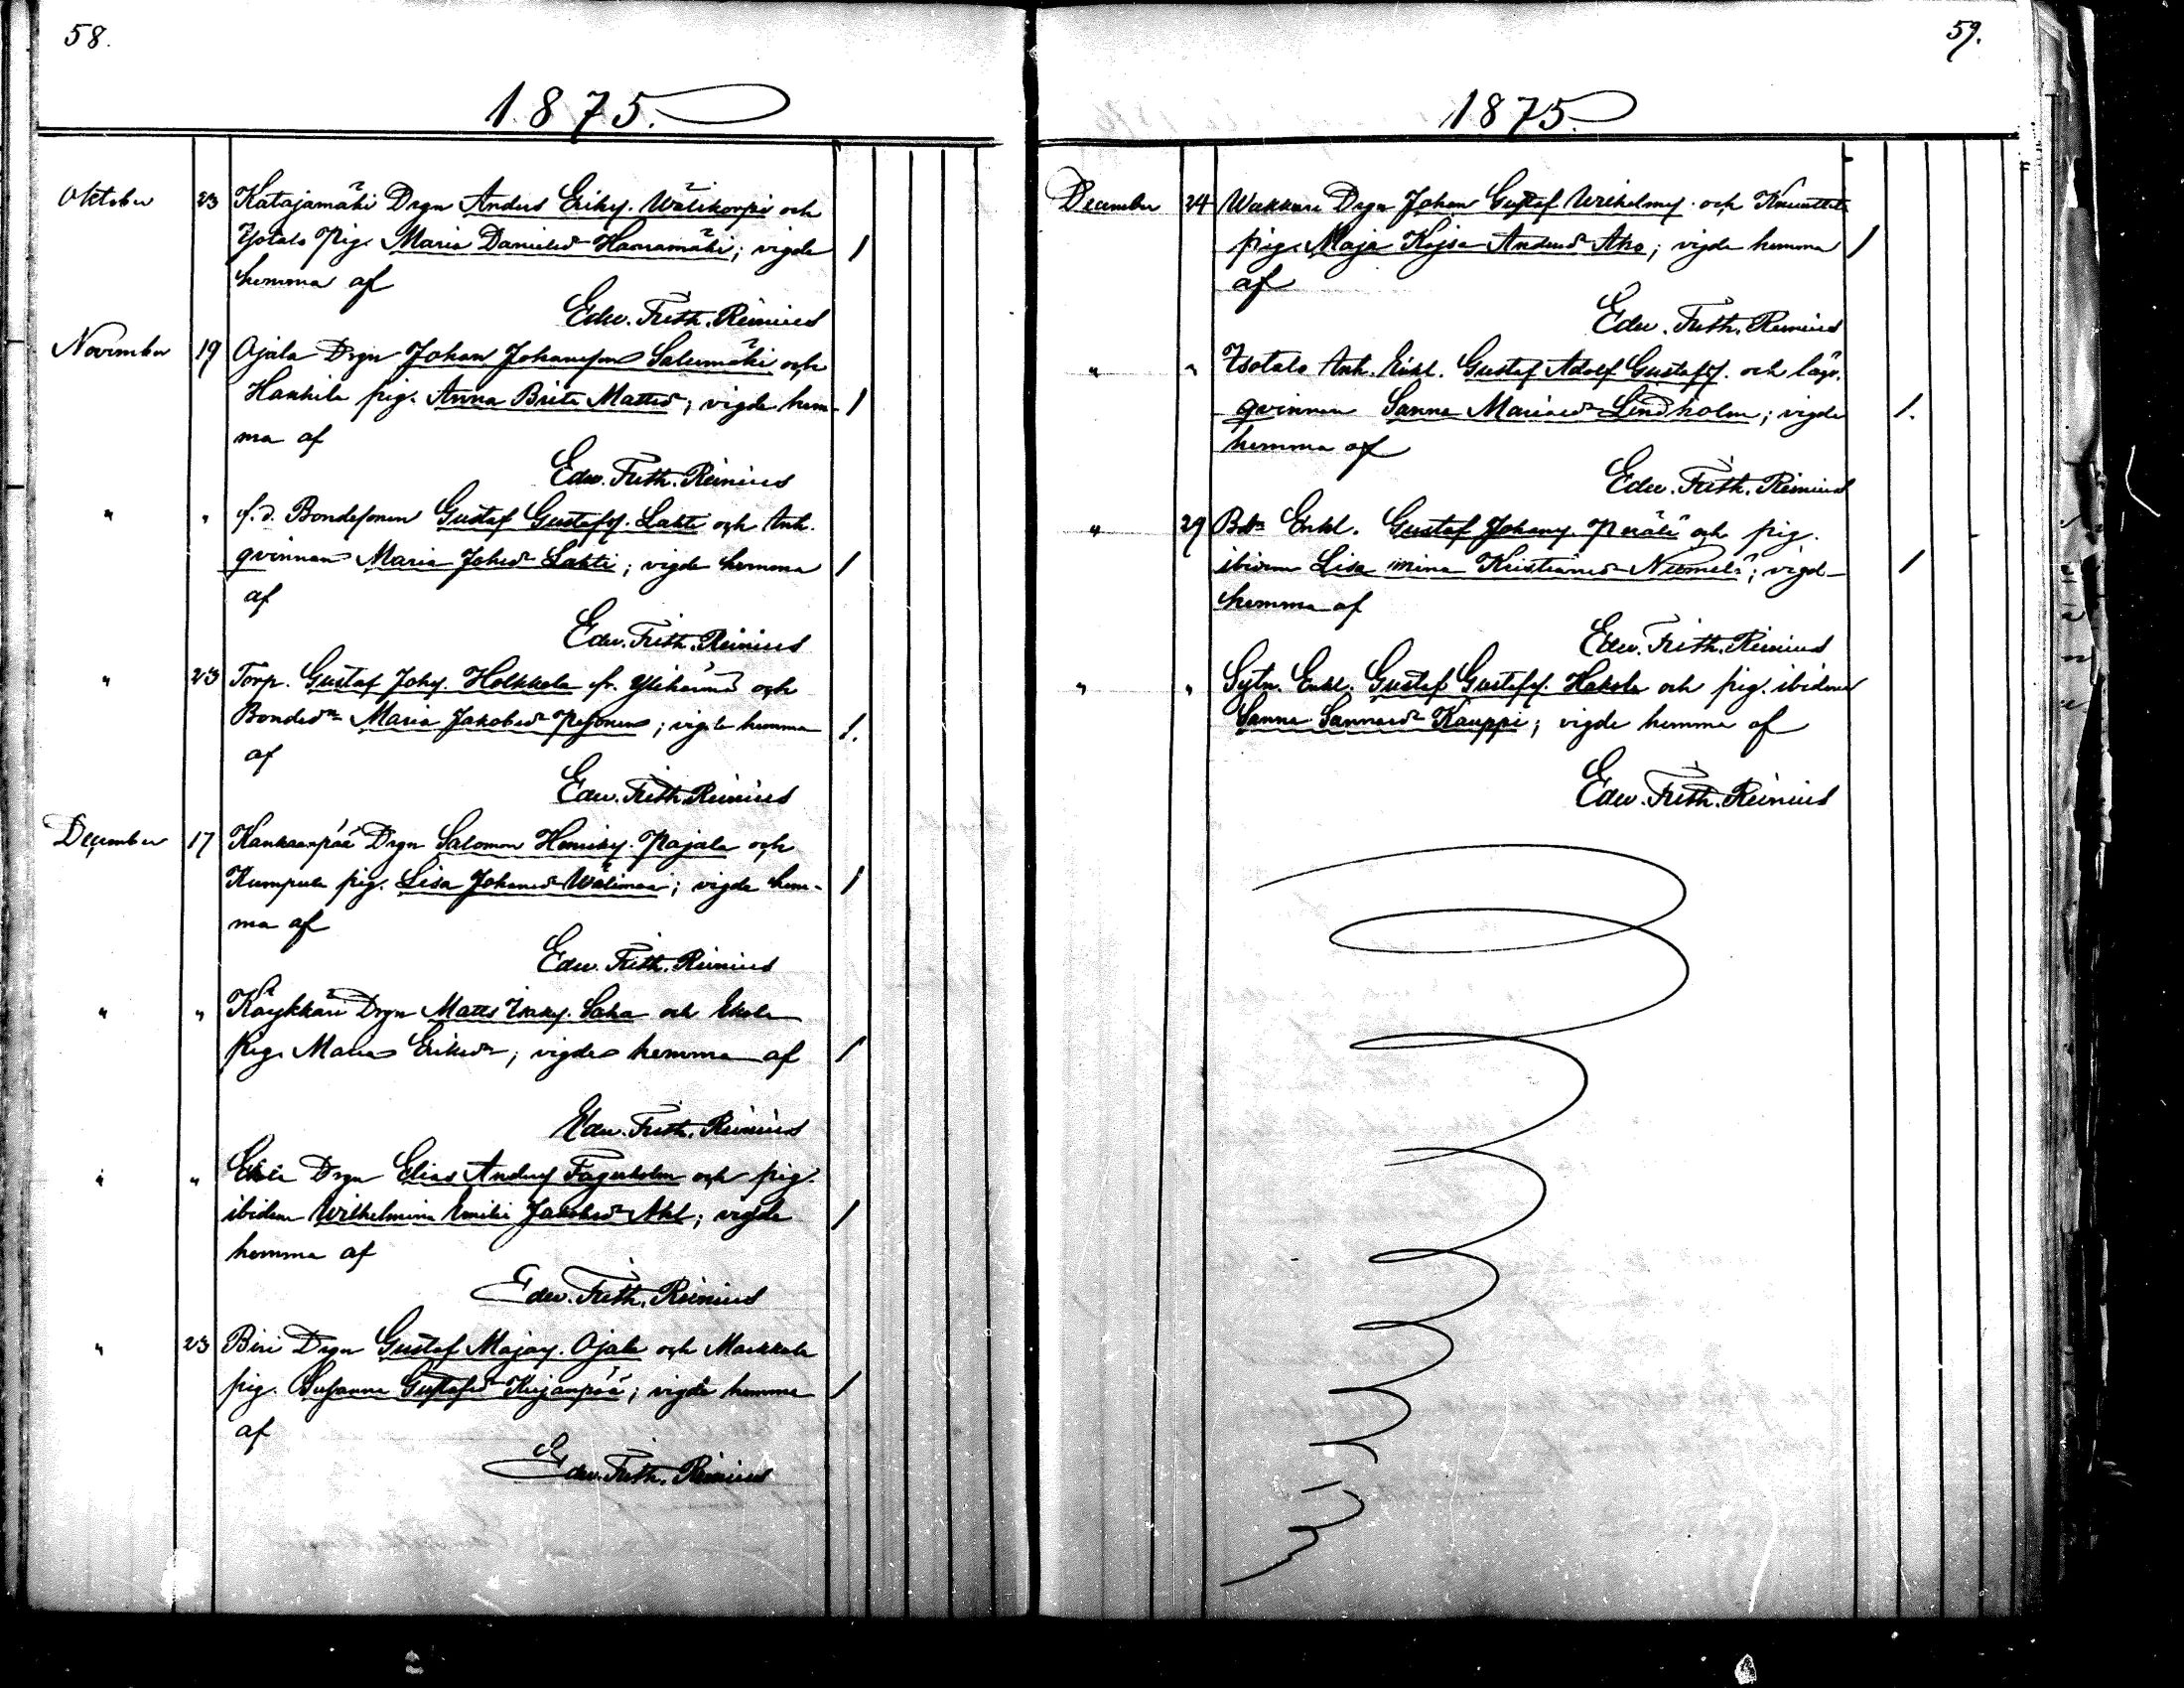 58.
1875.
Oktober 23 Katajamäki Drgn Anders Eriks. Wälikorpi och
Ysotalo Pig. Maria Danielsdr Haaramäki; vigde 1
hemma af
Edw. Frith. Reinius
November 19 Ojala Drgn Johan Johansson Salumäki och
Hanhila pig. Anna Brita Mattsd; vigde hem- 1
ma af
Edw. Frith. Reinius
" " f.d. Bondesonen Gustaf Gustafs. Lahti och Enk.
qvinnan Maria Johsdr Lahti; vigde hemma 1
af
Edw. Frith. Reinius
" 23 Torp. Gustaf Johs. Holkkola fr. Ylihärmä och
Bondedr Maria Jakobsdr Pesonen; vigde hemma 1.
af
Edw. Frith. Reinius
December 17 Kankaanpää Drgn Salomon Henriks. Pajala och
Kumpula pig. Lisa Johansdr Wälimaa; vigde hem- 1
ma af
Edw. Frith. Reinius
" " Käykkäri Drgn Matts Isaks. Saha och Ekola
Pig. Maria Eriksdr; vigde hemma af 1
Edw. Frith. Reinius
" " Drgn Elias Anders Fagerholm och pig.
ibidem Wilhelmina Emilia Jakobsdr; vigde 1
hemma af
Edw. Frith. Reinius
" 23 Biri Drgn Gustaf Majas. Ojala och Markkula
pig. Susanna Gustafsdr Kujanpää; vigde hemma 1
af
Edw. Frith. Reinius
59.
1875.
December 24 Wakkuri Drgn Johan Gustaf Wilhelms. och Knuuttila
pig. Maja Kajsa Andersdr Aho; vigde hemma 1
af
Edw. Frith. Reinius
" " Ysotalo Enkl. Gustaf Adolf Gustafs. och
qvinnan Sanna Mariasdr Lindholm; vigde 1.
hemma af
Edw. Frith. Reinius
" 29 Bdn Enkl. Gustaf Johans. Perälä och pig.
ibidem Lisa mina Kristiansdr Niemelä; vigd 1
hemma af
Edw. Frith. Reinius
" " Sytn. Enkl. Gustaf Gustafs. Hakola och pig. ibidem
Sanna Sannasdr Kauppi; vigde hemma af
Edw. Frith. Reinius